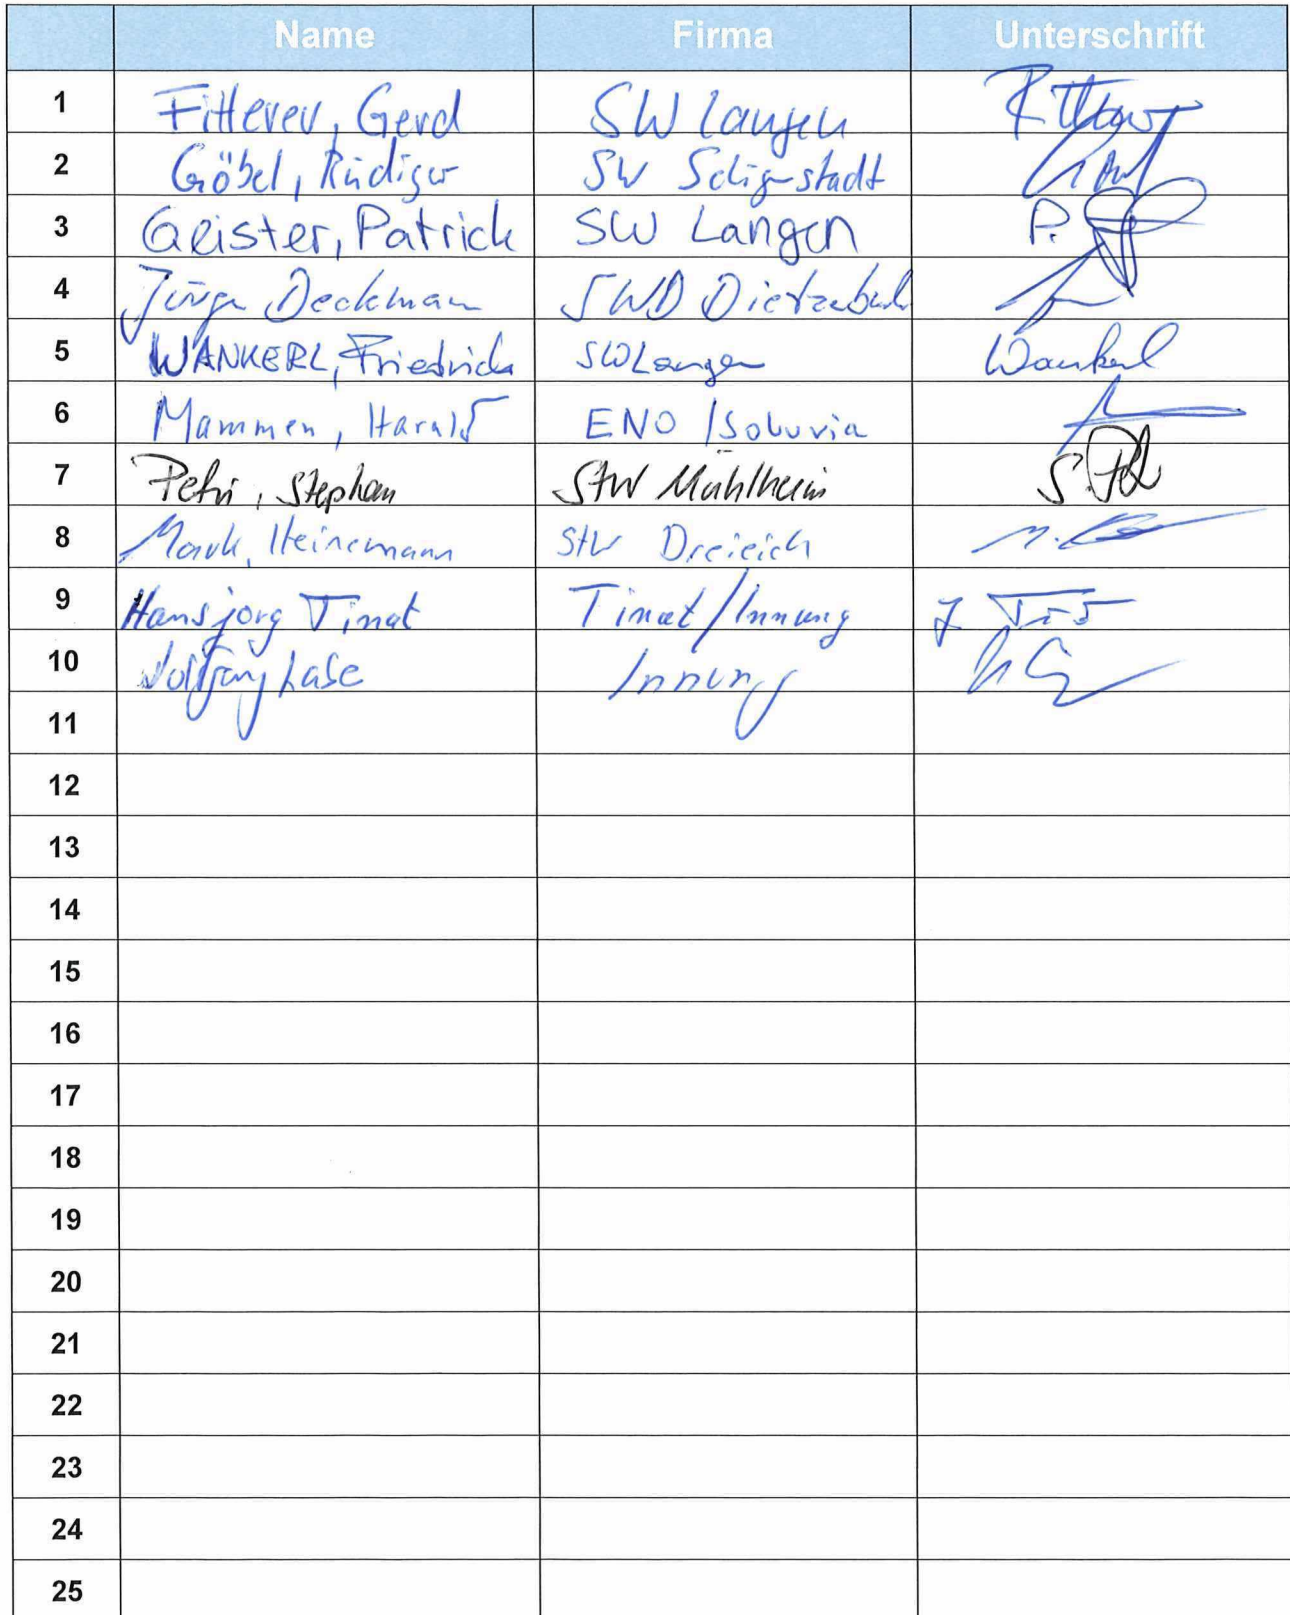 Name Firma Unterschrift
1 Fitterer, Gerd SW Langen
2 Göbel, Rüdiger SW Seligenstadt
3 Geister, Patrick SW Langen P.
4 Jürgen Deckmann SWD Dietzenbach
5 WANKERL, Friedrich SW Langen Wankerl
6 Mammen, Harald ENO /Soluvia
7 Petri, Stephan StW Mühlheim
8 Mark, Heinemann StW Dreieich
9 Hansjörg Tinat Tinat/Innung
10 Wolfgang Innung
11
12
13
14
15
16
17
18
19
20
21
22
23
24
25